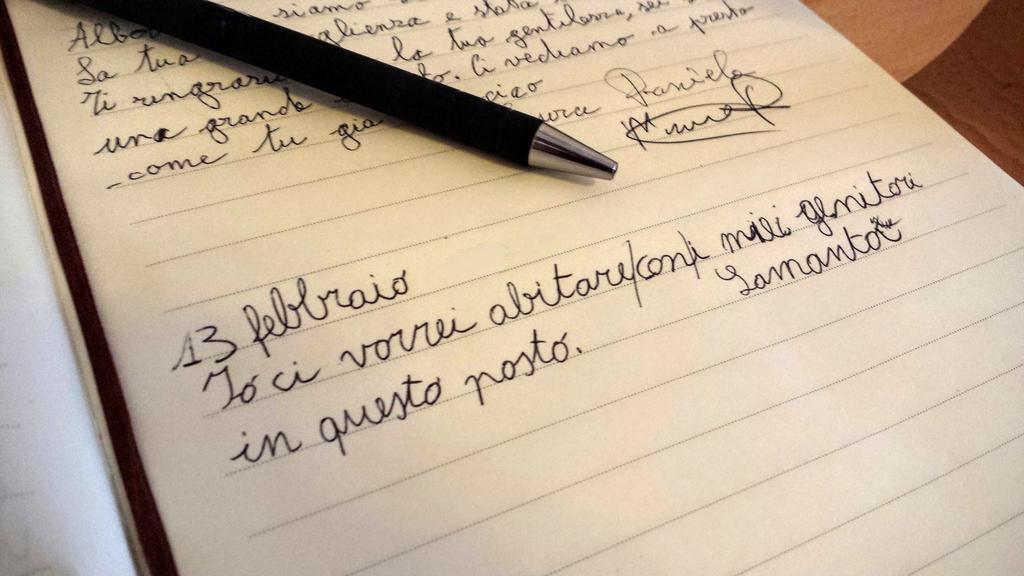 siamo
La tua glienza e stata
Ti ringrazi la tua gentilezza, sei
una grande to. Ci vediamo a presto
come tu già ciao Daniela
13 febbraio
Io ci vorrei abitare (con i miei genitori
in questo posto. Samanta